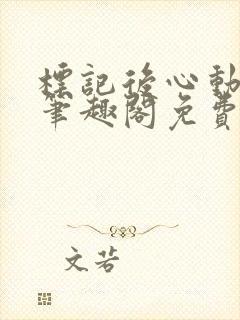 標記後心動
筆趣閣免費
文若